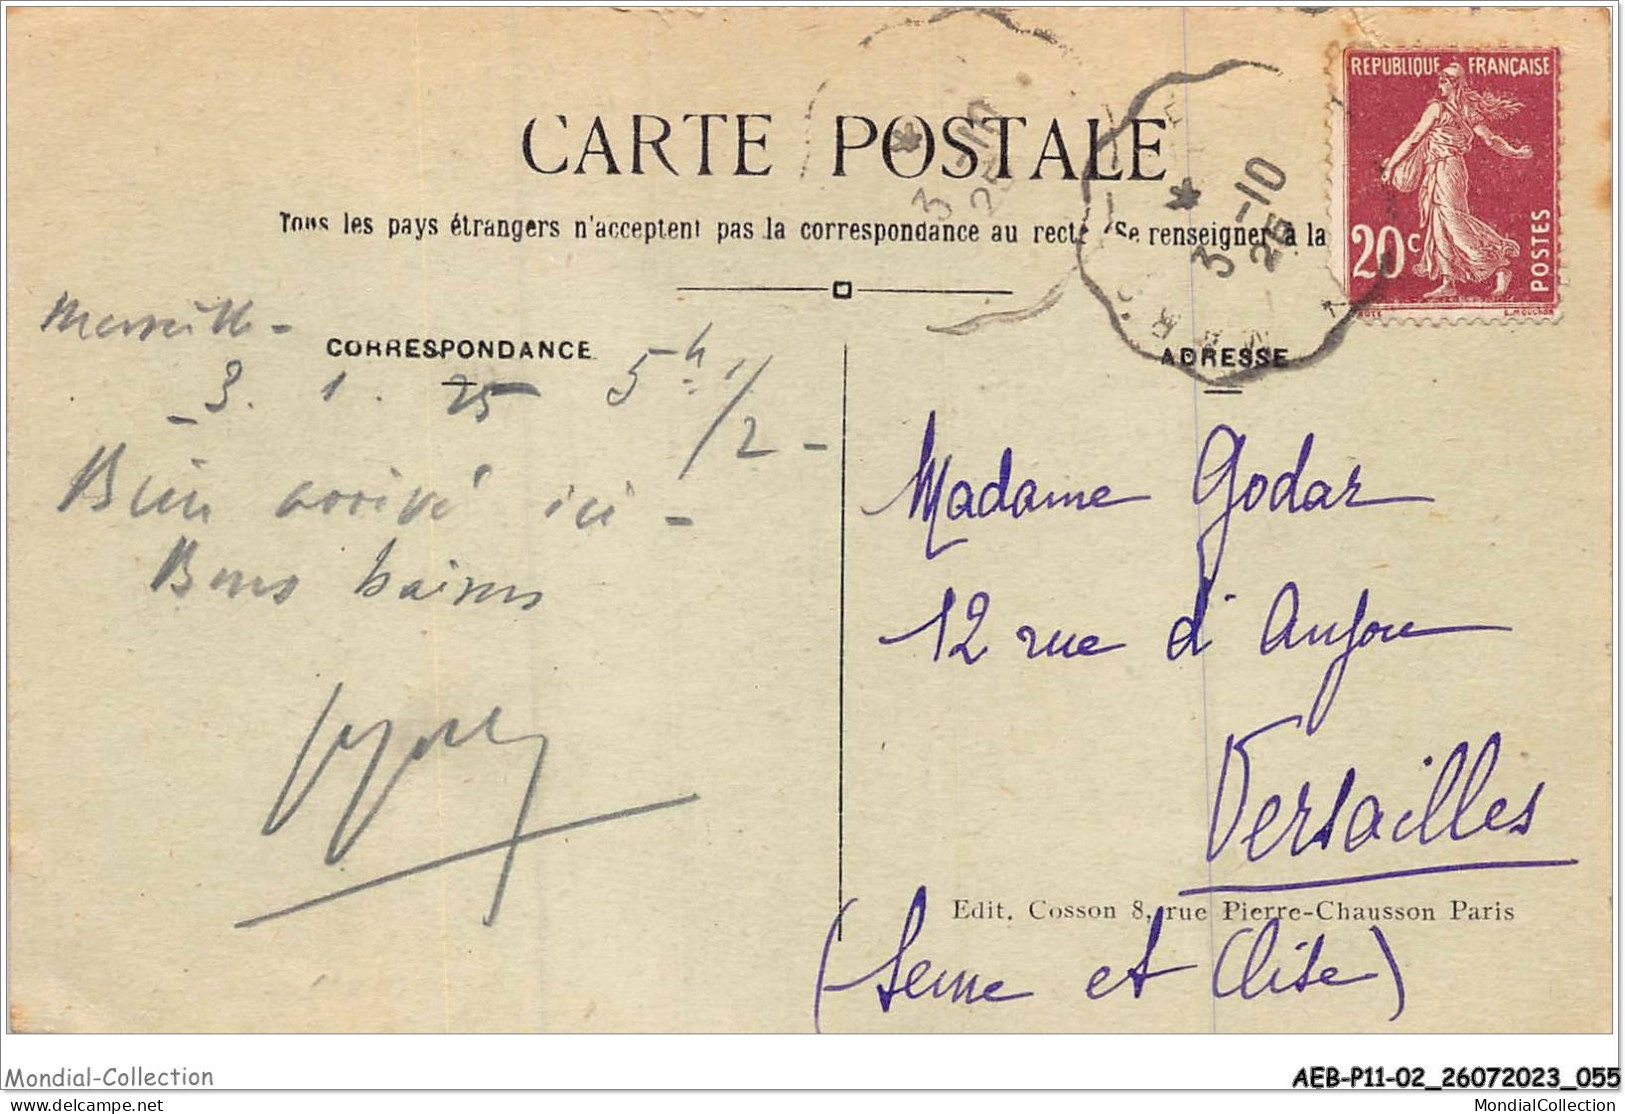 REPUBLIQUE FRANÇAISE
20c
POSTES
CARTE POSTALE
Tous les pays étrangers n'acceptent pas la correspondance au recto (Se renseigner à la
3-10
25
3-10
25
CORRESPONDANCE
Marseille -
- 3. 1. 25 5h 1/2 -
Bien arrivé ici -
Bons baisers
ADRESSE
Madame Godar
12 rue d'Anjou
Versailles
(Seine et Oise)
Edit. Cosson 8, rue Pierre-Chausson Paris
Mondial-Collection
AEB-P11-02_26072023_055
delcampe.net
MondialCollection